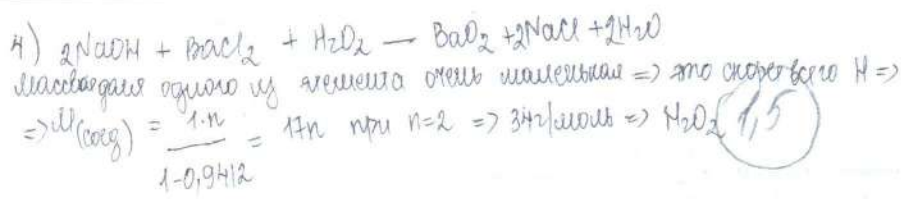 4) 2NaOH + BaCl₂ + H₂O₂ — BaO₂ + 2NaCl + 2H₂O
Массовая доля одного из элемента очень маленькая => это скорее всего H =>
=> M(соед) = 1·n / 1-0,9412 = 17n при n=2 => 34г/моль => H₂O₂ 1,5